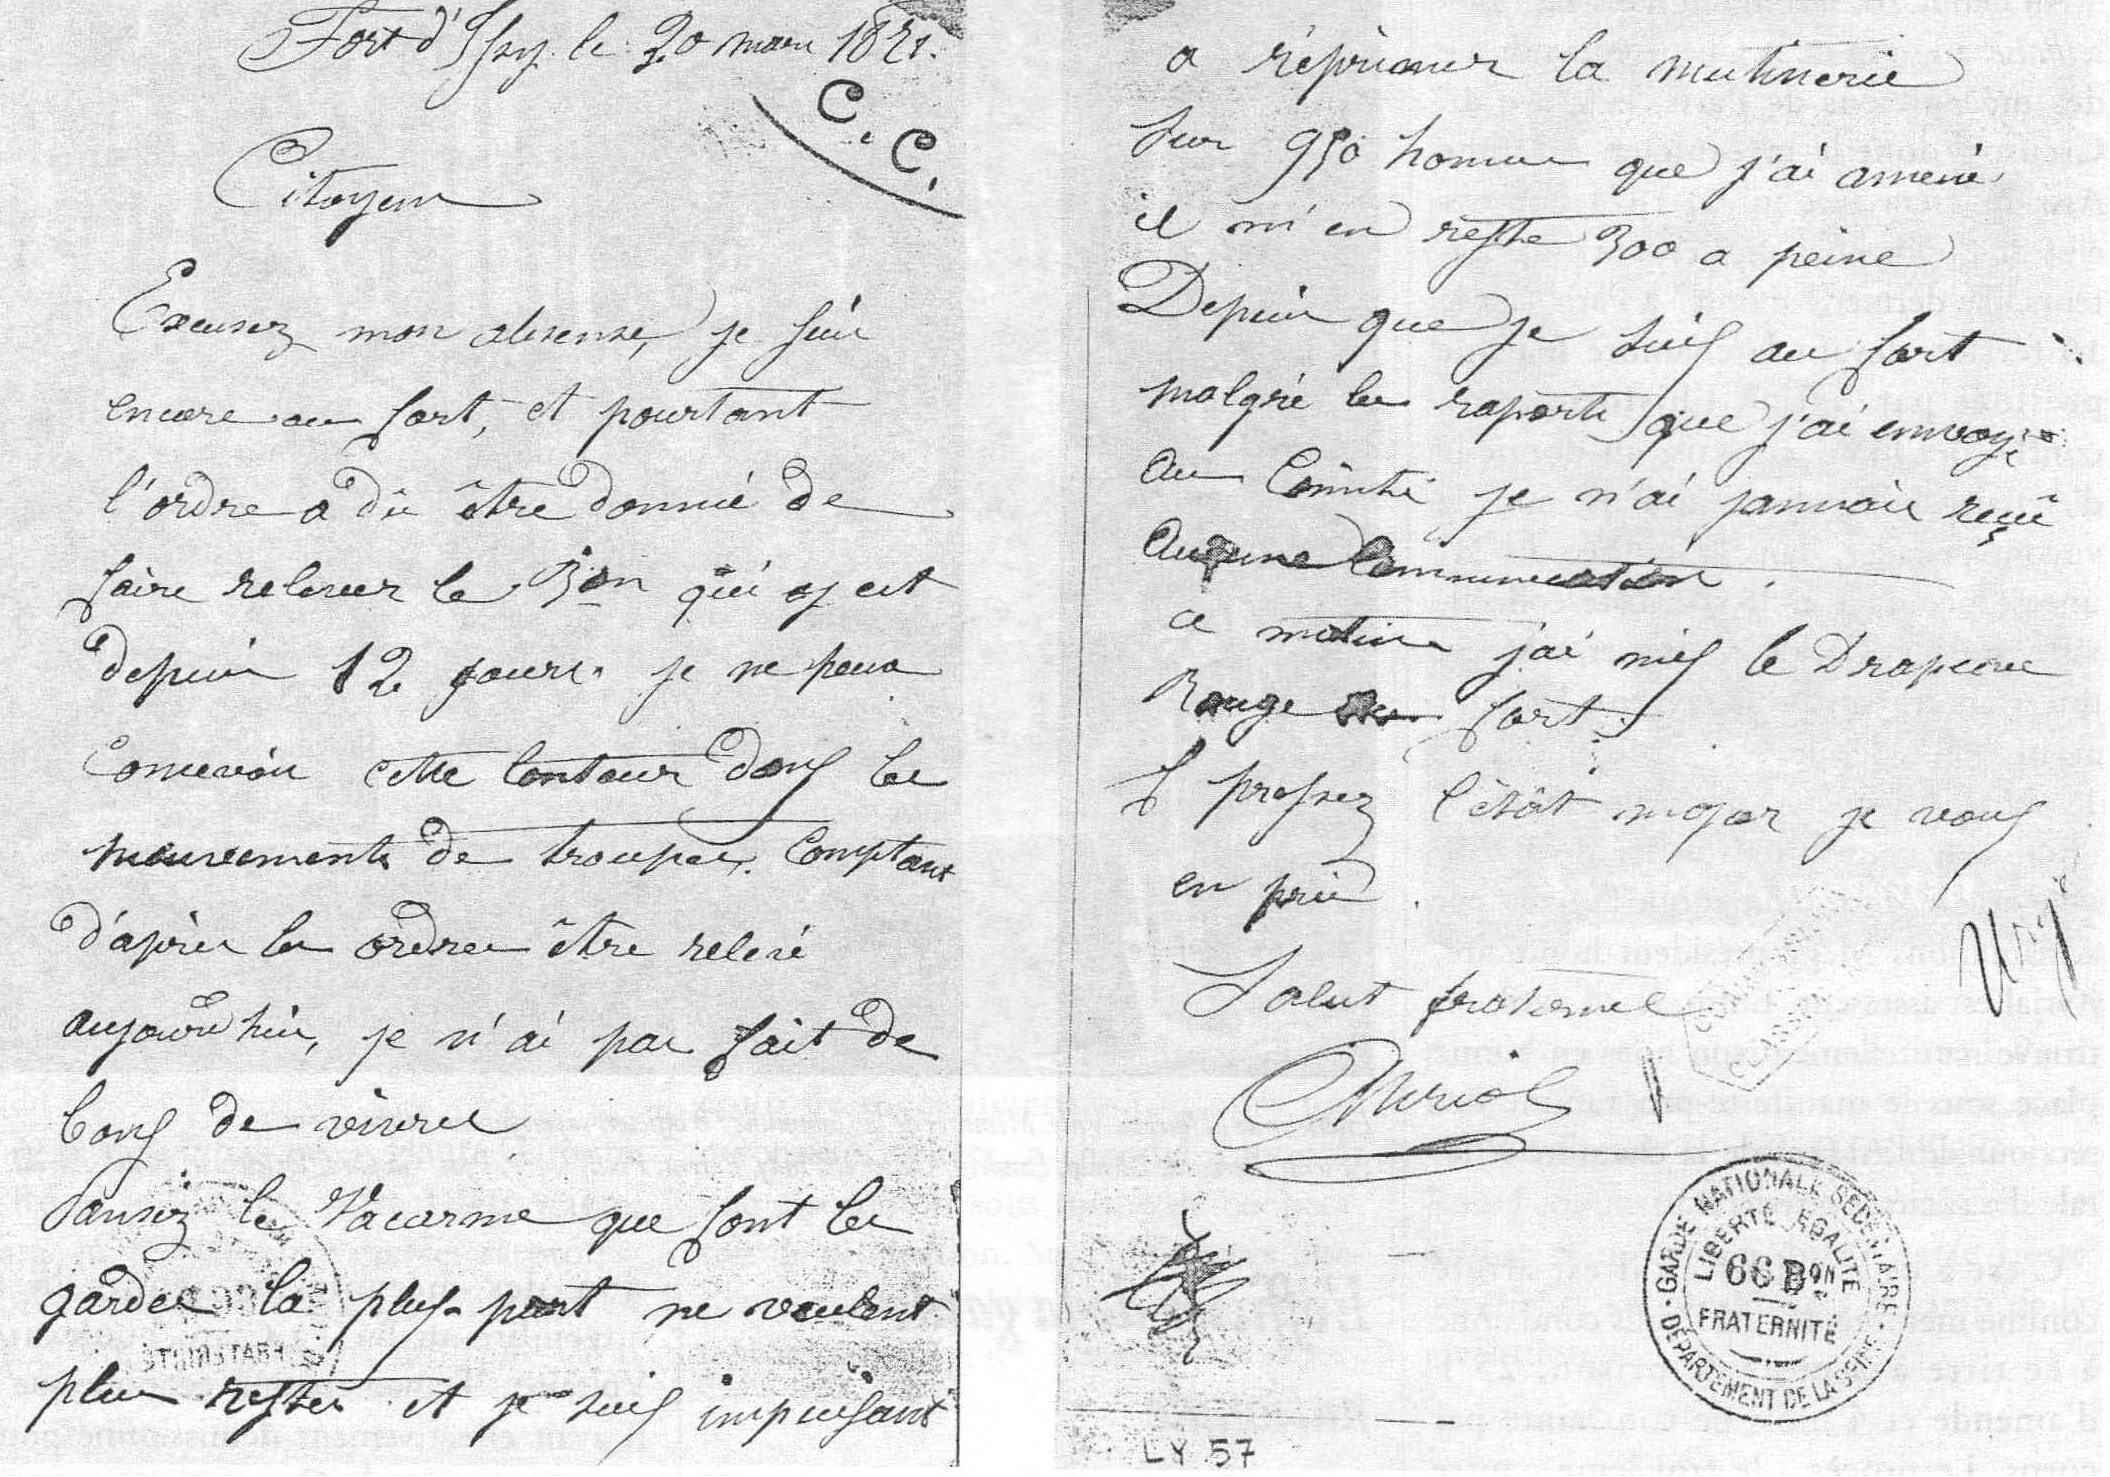 Fort d'Issy le 20 mars 1871.
C. C.
Citoyens
Excusez mon absense, je suis
encore au fort, et pourtant
l'ordre a dû être donné de
faire relever le Bon qui y est
depuis 12 jours. je ne peux
Concevoir cette lenteur dans les
mouvements de troupes. Comptant
d'après les ordres être relevé
aujourd'hui, je n'ai pas fait de
bons de vivres
Pensez le Vacarme que font les
gardes la plus part ne veulent
plus rester et je suis impuisant
a réprimer la mutinerie
Sur 950 hommes que j'ai amené
il m'en reste 300 a peine
Depuis que je suis au fort
malgré les raports que j'ai envoyé
au Comité je n'ai jammais reçû
Auqune Communication.
ce matin j'ai mis le Drapeau
Rouge au fort.
pressez l'étât major je vous
en prie.
Salut fraternel
GARDE NATIONALE SÉDENTAIRE
LIBERTÉ ÉGALITÉ
66 Bon
FRATERNITÉ
DÉPARTEMENT DE LA SEINE
LY 57